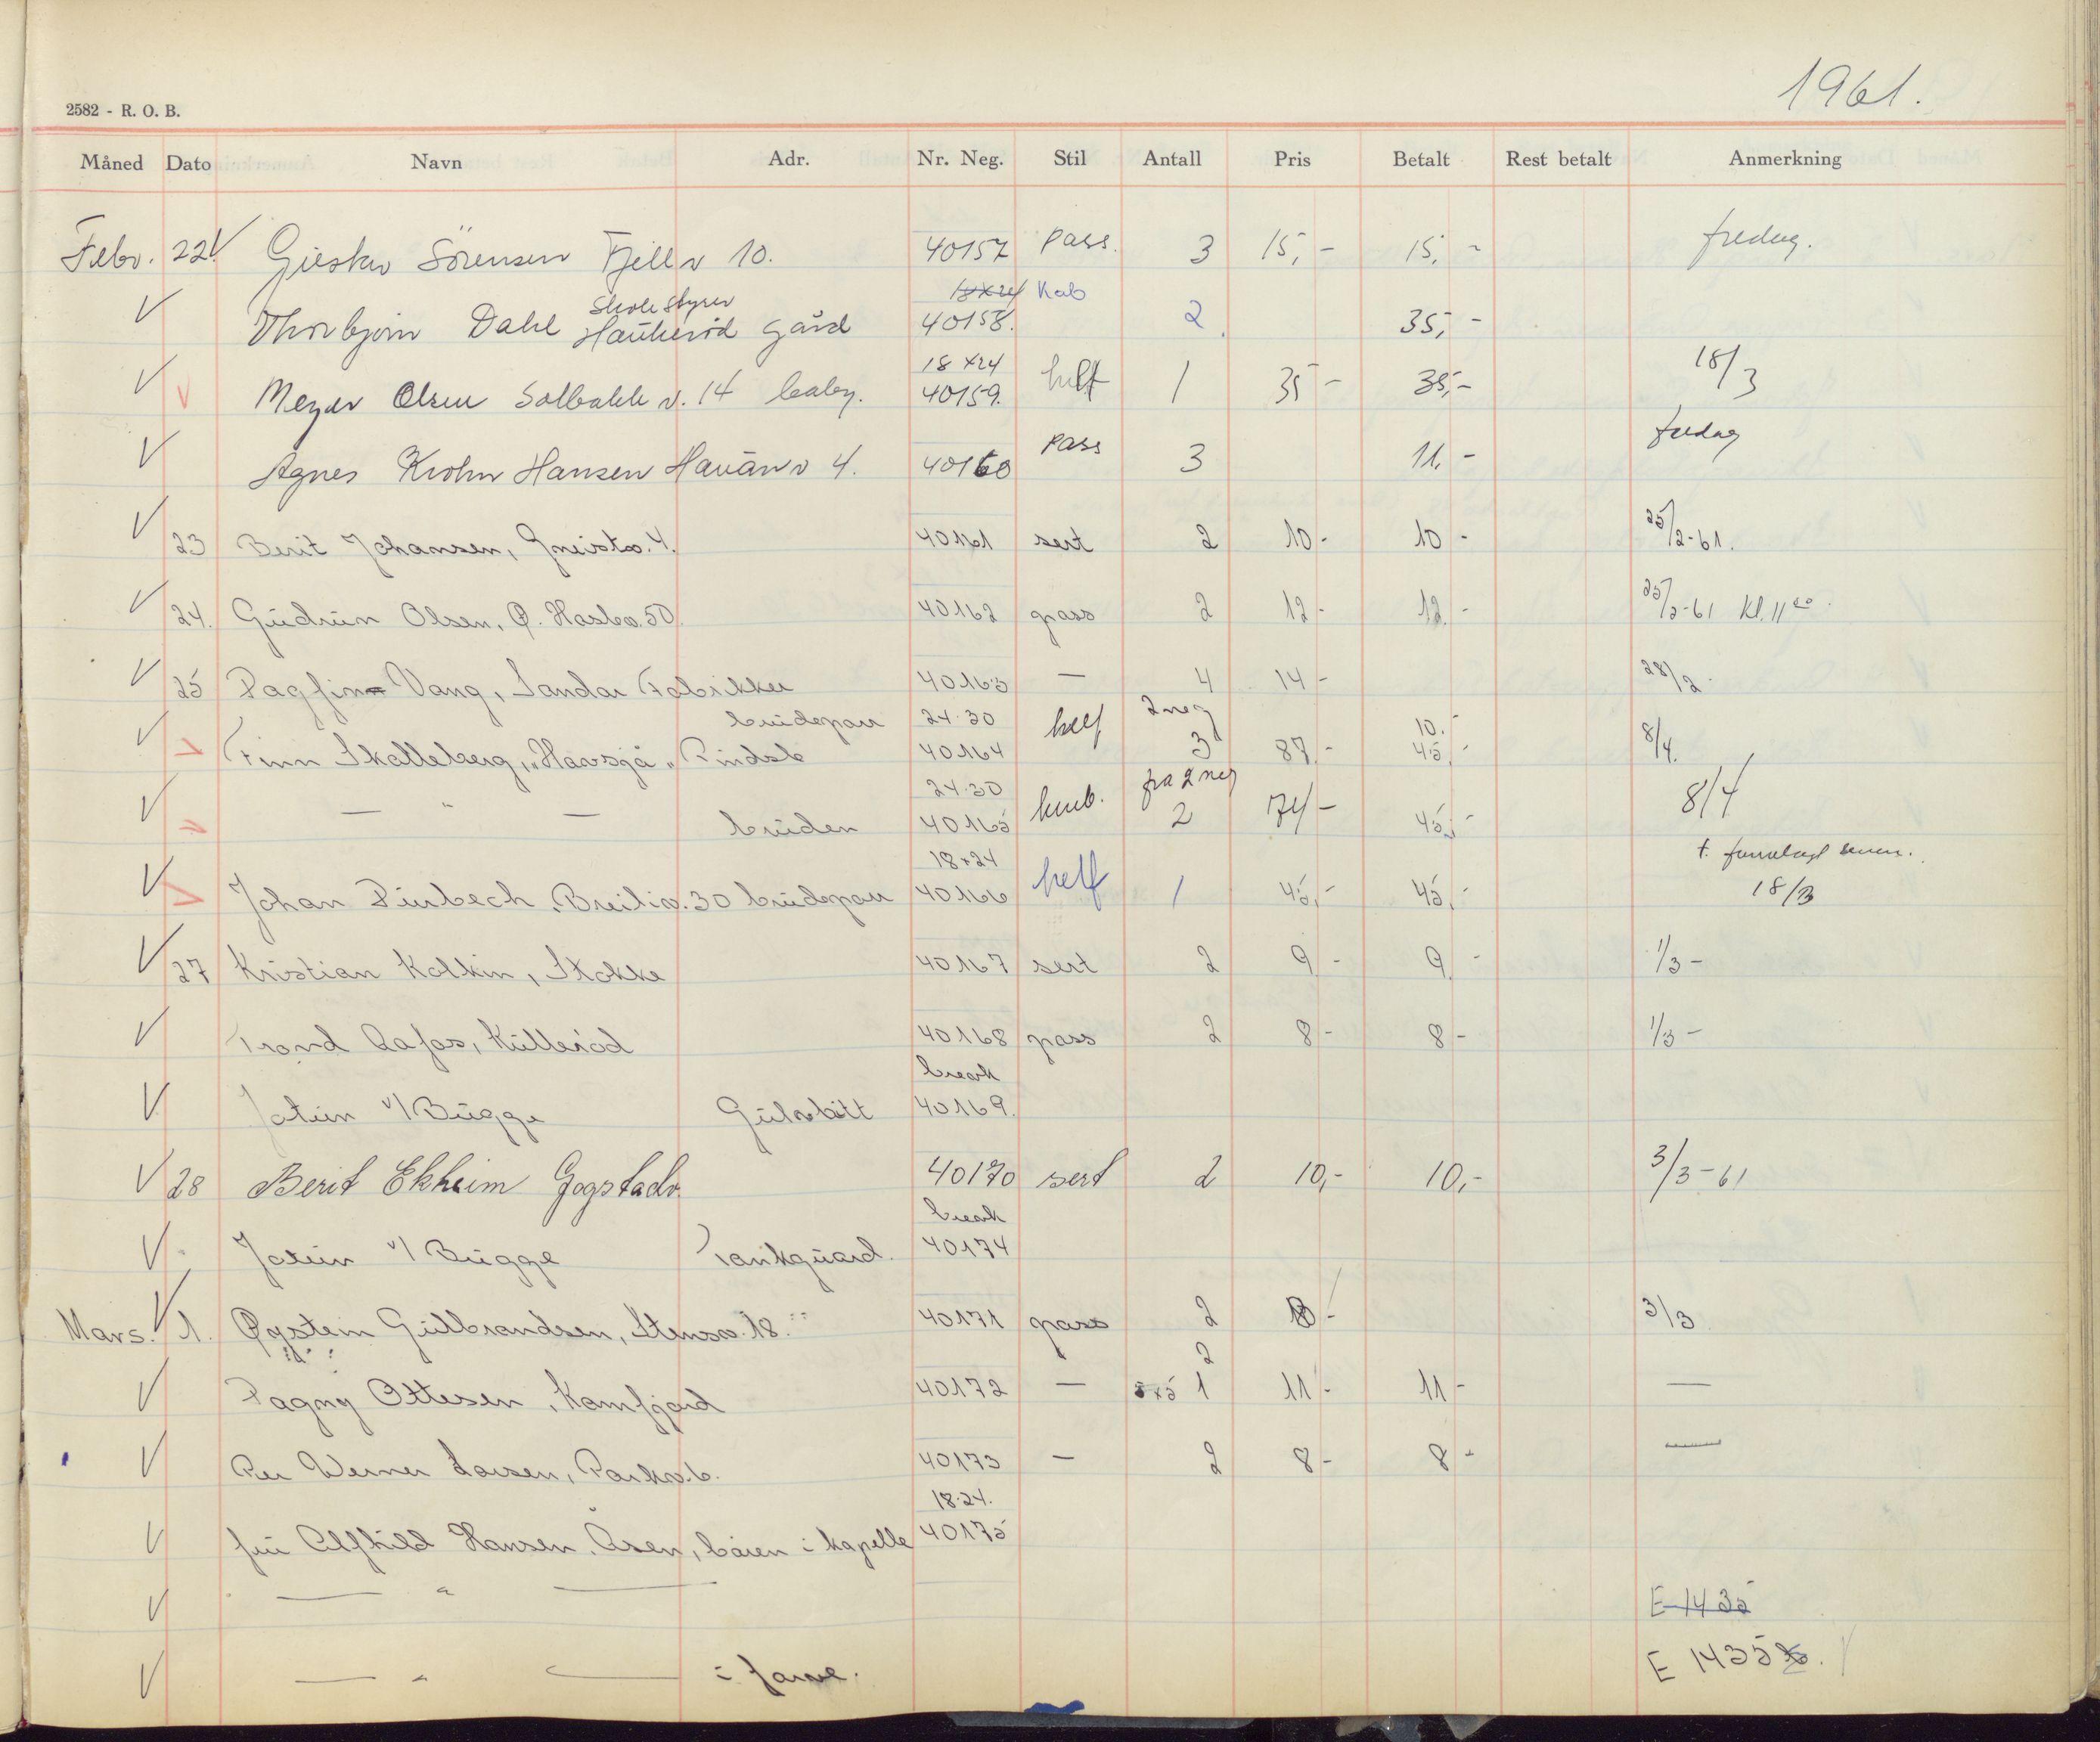 1961.
2582 - R. O. B.
Måned Dato Navn Adr. Nr. Neg. Stil Antall Pris Betalt Rest betalt Anmerkning
Febr. 22 Sörensen Fjellv 10. 40157 Pass. 3 15,- 15,- fredag.
18x24 Kab
Skole styrer
Thorbjørn Dahl Haukerød gård 40158. 2. 35,-
18x24
Meyer Olsen Solbakk v. 14 baby. 40159. helf 1 35- 35,- 18/3
Agnes Krohn Hansen Havänv 4. 40160 Pass 3 11,- fredag
23 Berit Johansen, Gneistv. 4. 40161 sert 2 10- 10- 25/2-61.
24. Gudrun Olsen, Ø. Haslev. 50 40162 pass 2 12- 12- 25/2-61 Kl. 11
25 Dagfinn Vang, Sandar Fabrikker 40163 — 4 14- 28/2-
brudepar 24.30 helf 2 neg 10.-
Finn Skalleberg, „Havsjå„ Vindal 40164 3 87,- 45,- 8/4.
24.30 fra 2 neg
— " — bruden 40165 knb. 2 74,- 45,- 8/4
18x24 t.
Johan Durbech, Breiliv. 30 brudepar 40166 helf 1 45,- 45,- 18/3
27 Kristian Kolkin, Stokke 40167 sert 2 9- 9- 1/3-
Trond Aafos, Küllerød 40168 pass 2 8- 8- 1/3-
break
Jotun v/ Bugge Gulvbitt 40169.
28 Berit Ekheim Gogstadv. 40170 sert 2 10,- 10,- 3/3-61
break
Jotun v/ Bugge Tankguard. 40174
Mars. 1. Øystein Gulbrandsen, Stensv. 18. 40171 pass 2 3/3
2
Dagny Ottesen, Kamfjord 40172 — 1 11- 11- —
Per Werner Larsen, Parkv. 6. 40173 — 2 8- 8- —
18.24.
fru Alfhild Hansen, Åsen, båren i kapelle 40175
— " — E 1435
— " — i farve. E 1435